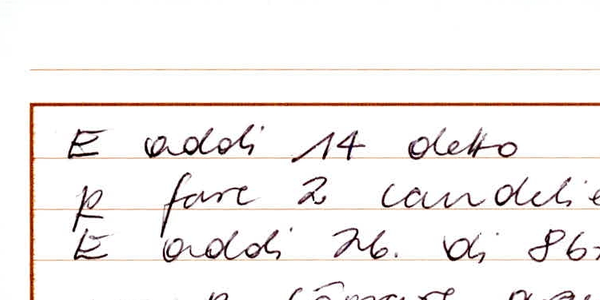 E addi 14 detto
p fare 2 candelie
E addi 26. di 86